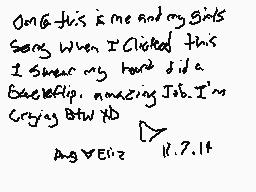 OMG this is me and my girls
song when I clicked this
I swear my heart did a
backflip. amazing Job. I'm
crying btw XD
Ang ♥ Eric 11.7.14